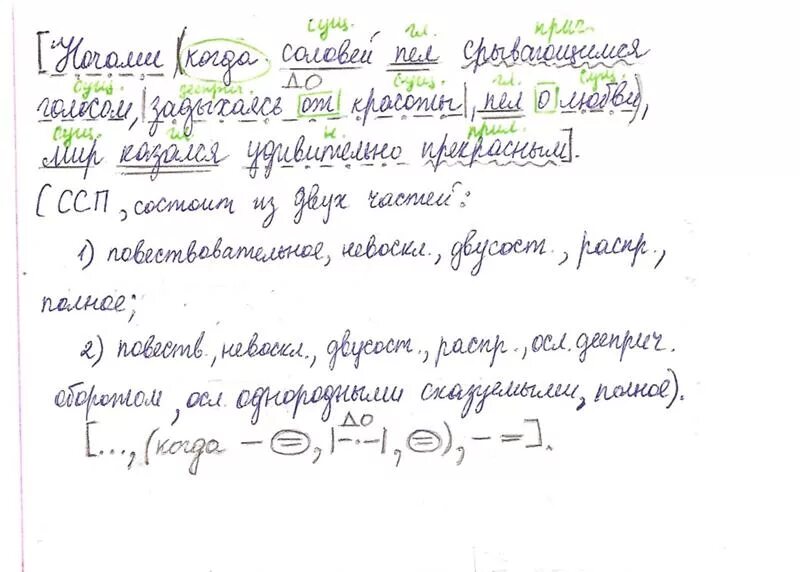 сущ. гл. прич.
["Ночами (когда соловей пел срывающимся
сущ. дееприч. ДО сущ. гл. сущ.
голосом, |задыхаясь от красоты|, пел о любви),
сущ. гл. н. прил.
мир казался удивительно прекрасным].
(ССП, состоит из двух частей:
1) повествовательное, невоскл., двусост., распр.,
полное;
2) повеств., невоскл., двусост., распр., осл. дееприч.
оборотом, осл. однородными сказуемыми, полное).
ДО
[..., (когда – =, |–·–|, =), – =].